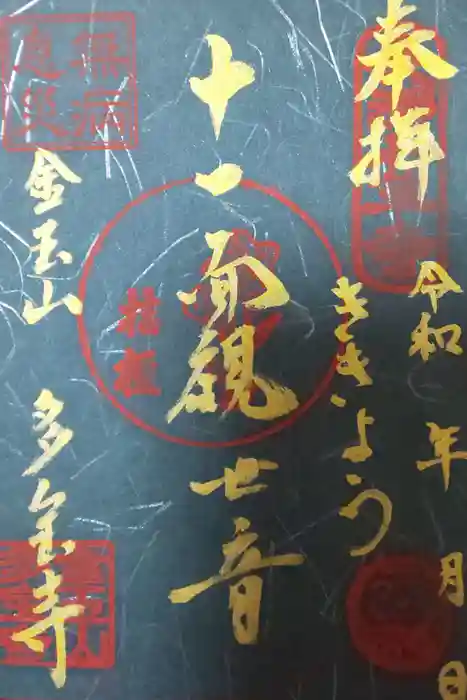 奉拝
令和 年 月 日
ききょう
十一面観世音
桔梗
無病
息災
金玉山 多宝寺